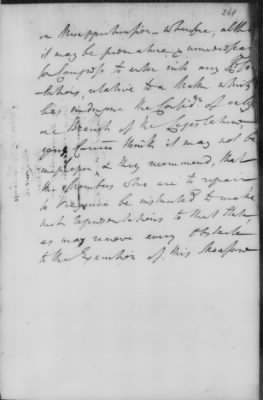 261
or Misapprehension – wherefore, altho
it may be premature & unnecessary
for Congress to enter into any Reso-
lutions, relative to a Matter which
has undergone the Consid.n of only
one Branch of the Legislature,
your Com.ee think it may not be
improper, & they recommend, that
the Members who are to repair
to be instructed to make
such representations to that State,
as may remove every Obstacle
to the Execution of this Measure